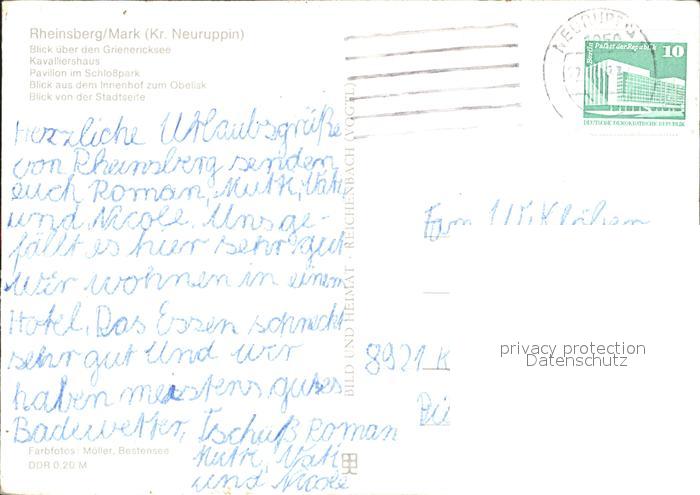 Rheinsberg/Mark (Kr. Neuruppin)
Blick über den Grienericksee
Kavaliershaus
Pavillon im Schloßpark
Blick aus dem Innenhof zum Obelisk
Blick von der Stadtseite
Herzliche Urlaubsgrüße
von Rheinsberg senden
euch Roman, Mutti, Vati
und Nicole. Uns ge-
fällt es hier sehr gut
Wir wohnen in einem
Hotel. Das Essen schmeckt
sehr gut Und wir
haben meistens gutes
Badewetter, Tschüß Roman
Mutti, Vati
und Nicole
Farbfotos: Möller, Bestensee
DDR 0,20 M
BILD UND HEIMAT · REICHENBACH (VOGTL)
NEURUPPIN
Berlin Palast der Republik 10
DEUTSCHE DEMOKRATISCHE REPUBLIK
Fam
8921 K
privacy protection
Datenschutz